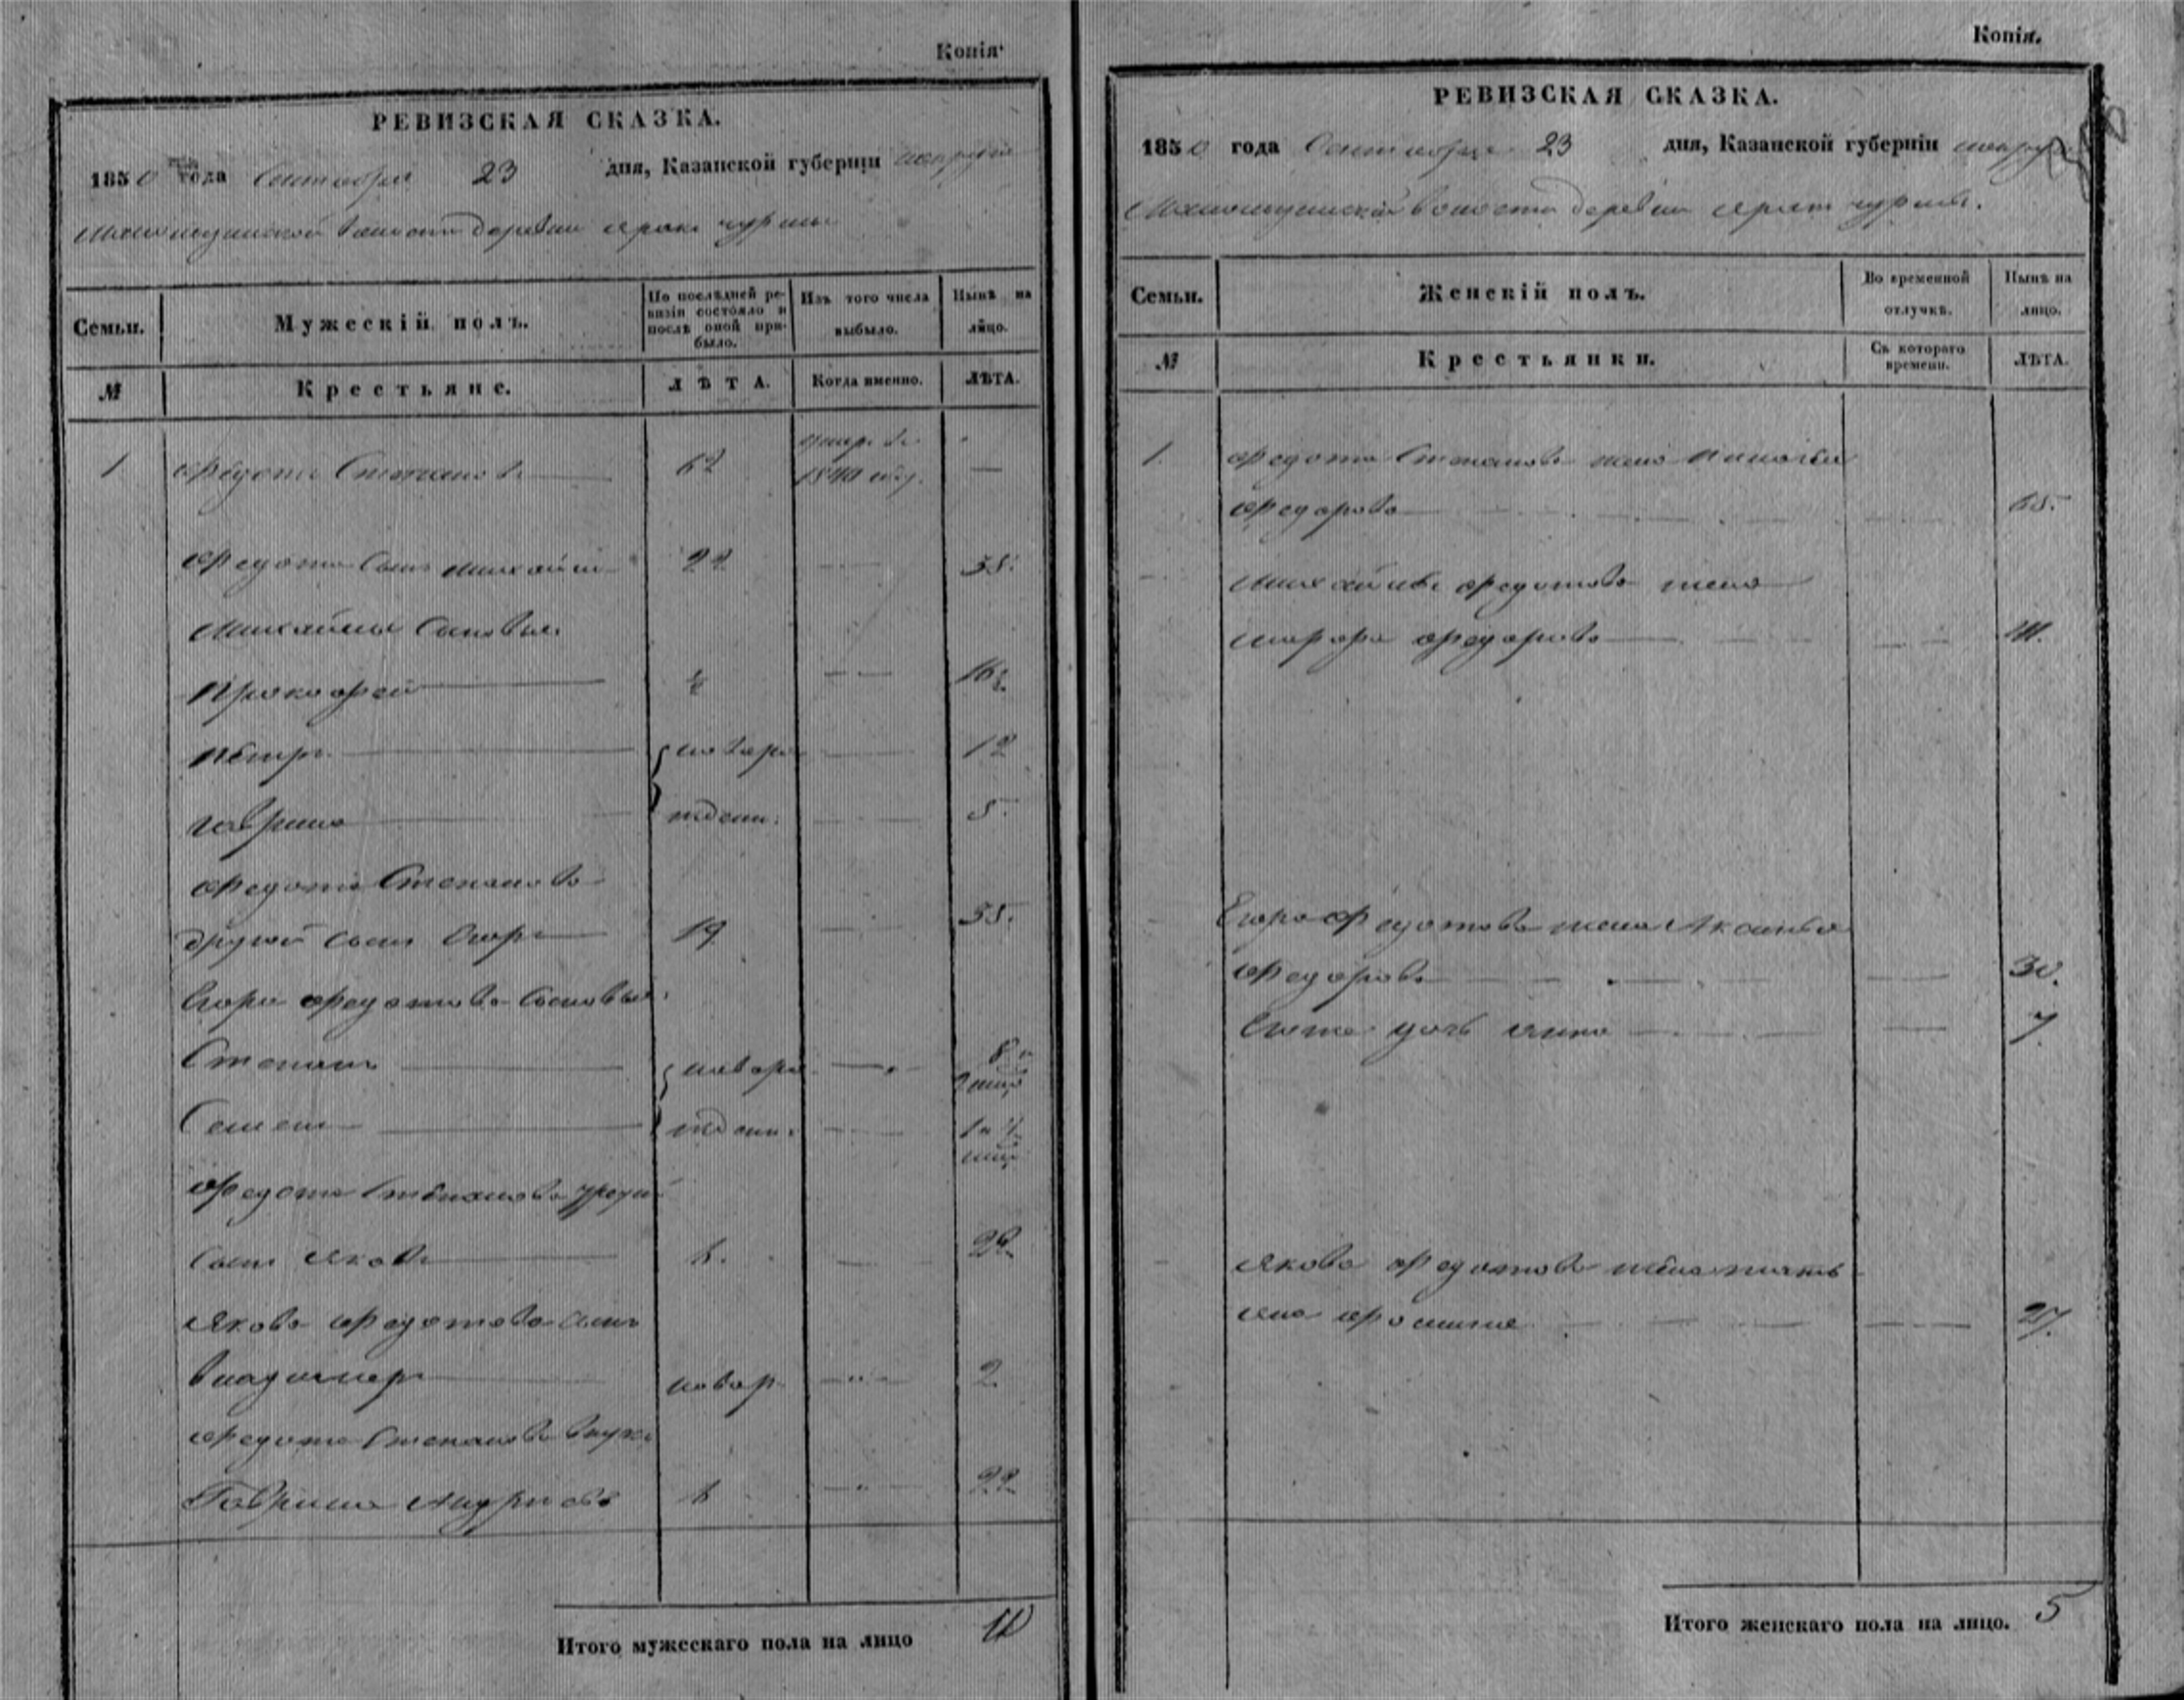 Копія.
РЕВИЗСКАЯ СКАЗКА.
1850 года Сентября 23 дня, Казанской губерніи
волости деревни
Семьи.
Мужескій полъ.
По послѣдней ревизіи состояло и послѣ оной прибыло.
Изъ того числа выбыло.
Нынѣ на лицо.
№
Крестьяне.
ЛѢТА.
Когда именно.
ЛѢТА.
1 Федотъ Степановъ 62 умер. въ 1840 —
Федота сынъ Михайла 22 38.
Михайлы сыновья
Прокофей ½ 16½
Петръ новоро 12
Гаврила ждени. 5.
Федота Степанова
другой сынъ Егоръ 19 35.
Егора Федотова сыновья
Степанъ новоро 8 и
Семенъ ждени. 1 и
Федота Степанова трети
сынъ Яковъ 6. 22
Якова Федотова сынъ
Владимеръ новор. 2
Федота Степанова внукъ
Гаврила Андреевъ 6 22
Итого мужескаго пола на лицо 10
Копія.
РЕВИЗСКАЯ СКАЗКА.
1850 года Сентября 23 дня, Казанской губерніи
волости деревни
Семьи.
Женскій полъ.
Во временной отлучкѣ.
Нынѣ на лицо.
№
Крестьянки.
Съ котораго времени.
ЛѢТА.
1. Федота Степанова жена
Федорова 65.
Михайлы Федотова жена
Федорова 41.
Егора Федотова жена Аксинья
Федорова 30.
Егоже дочь Анна 7
Якова Федотова жена Тать
яна 27.
Итого женскаго пола на лицо. 5